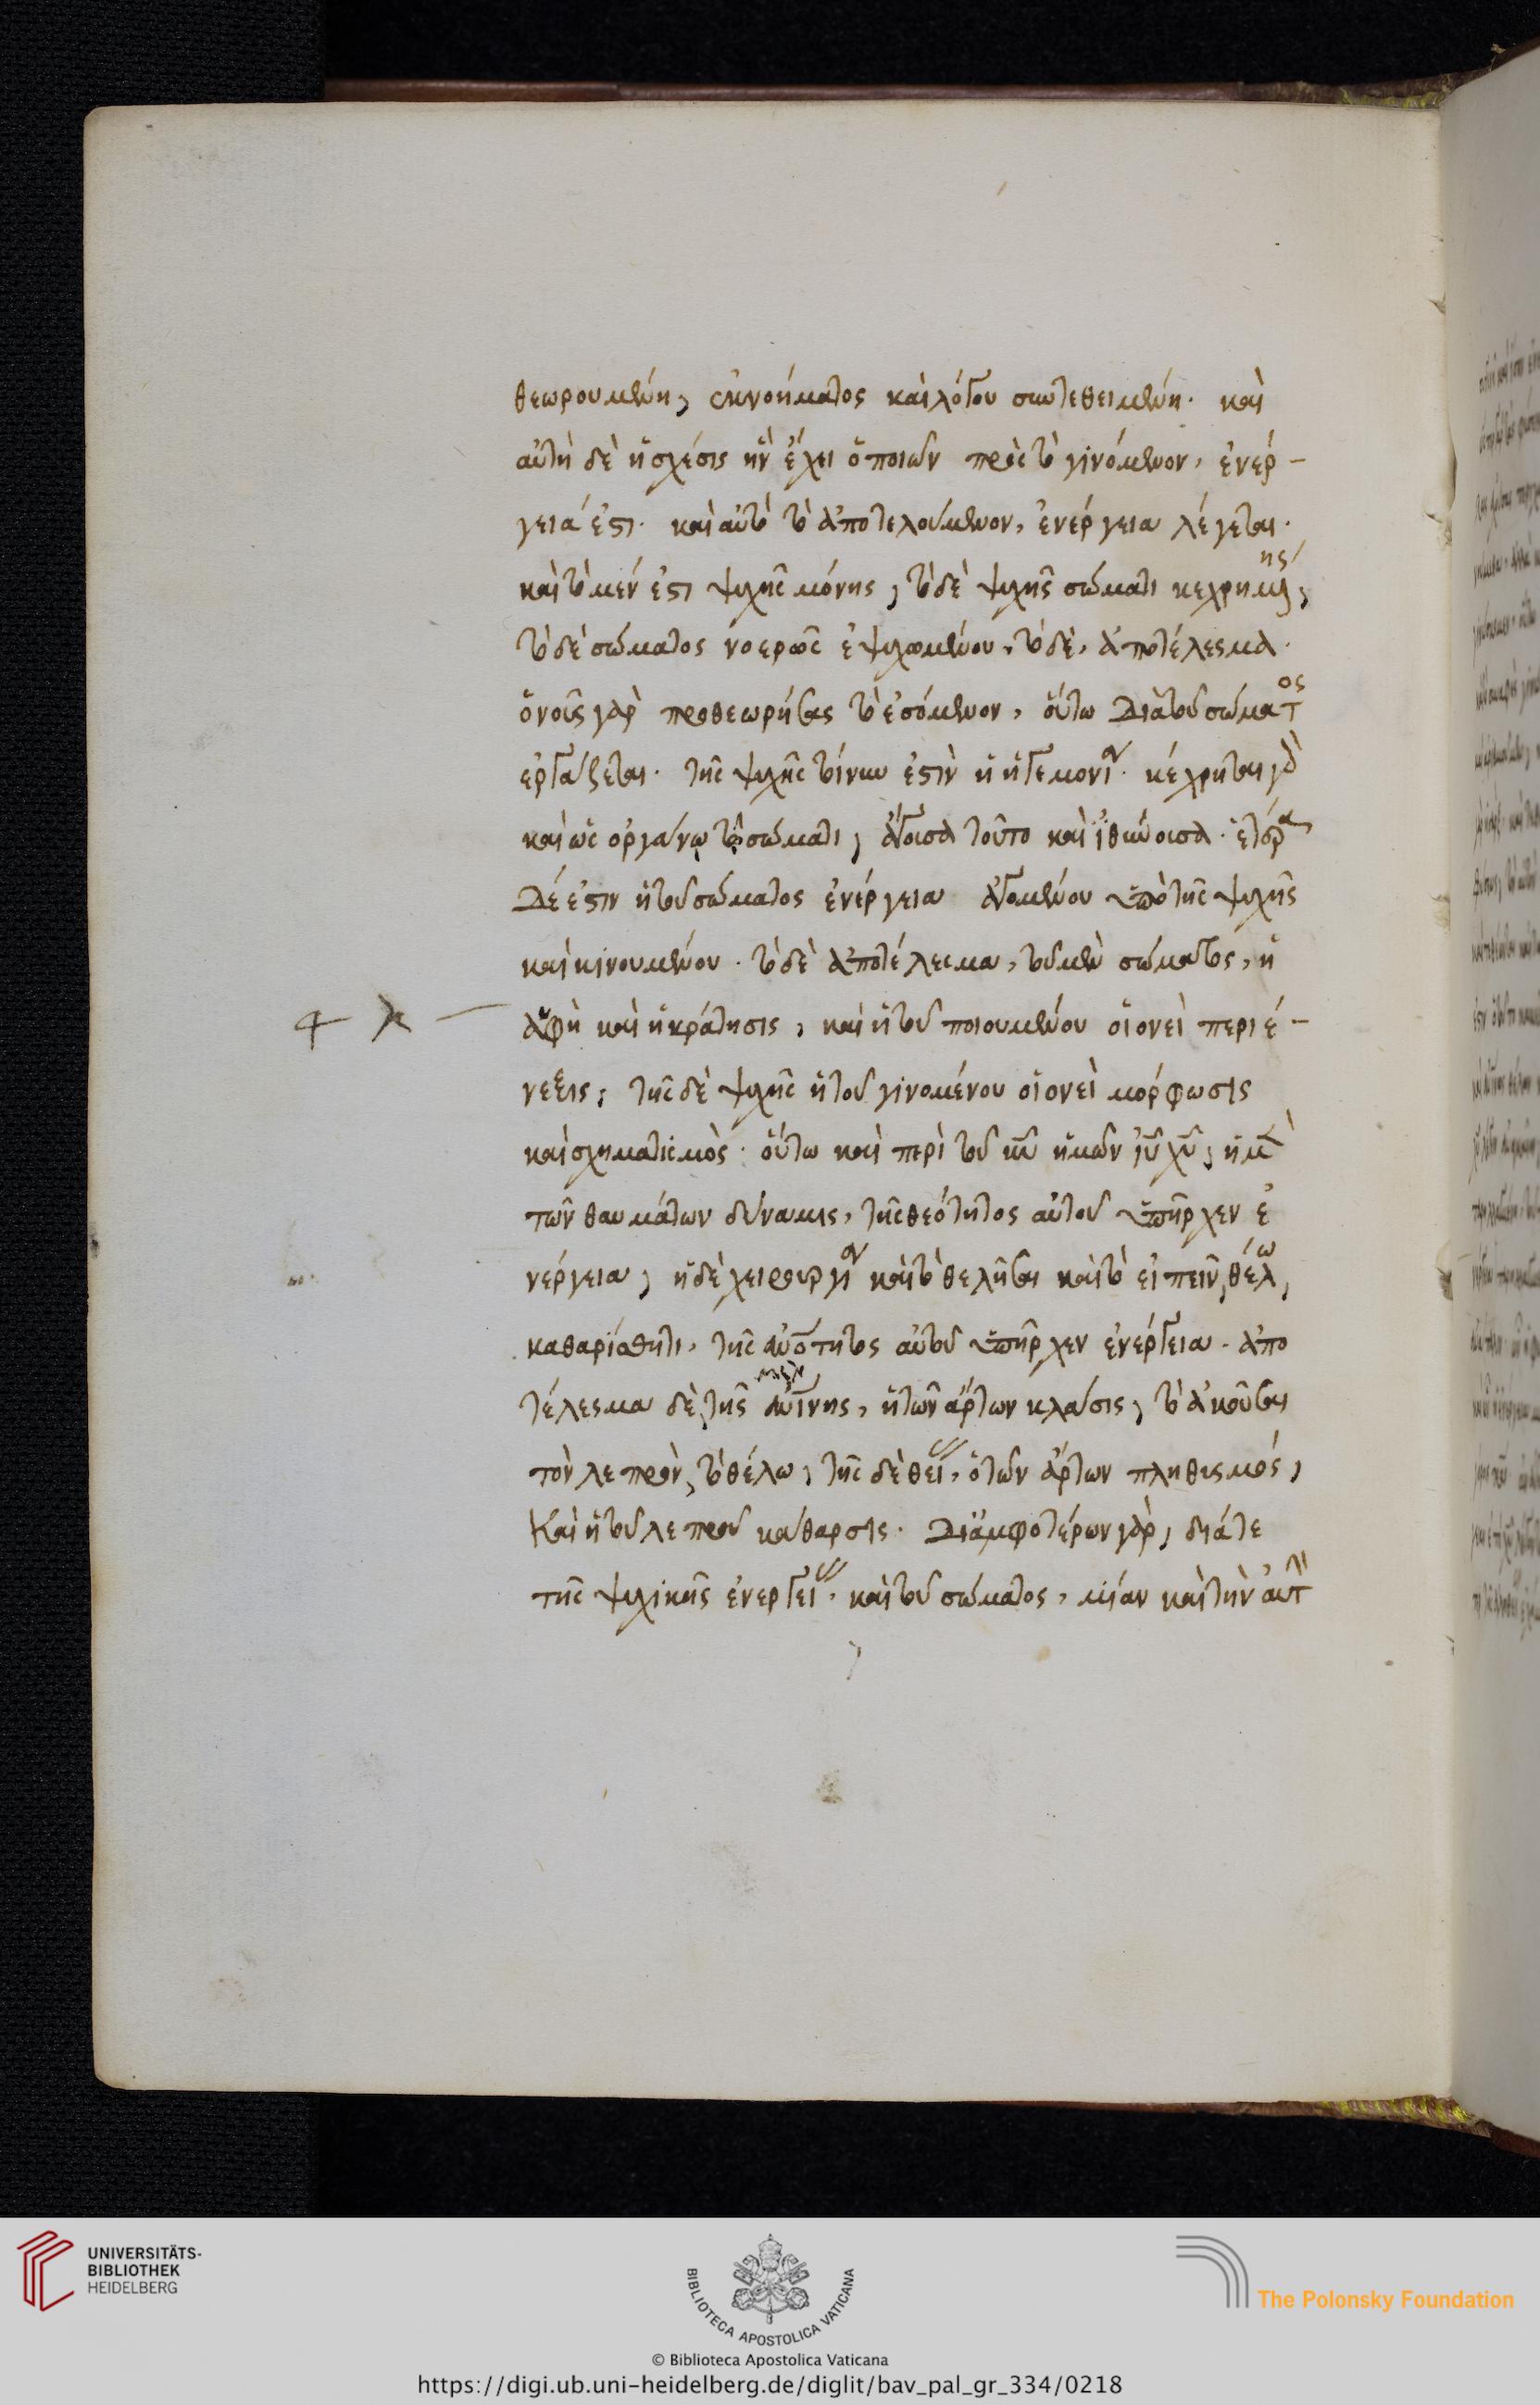 θεωρουμένη, ἐκ νοήματος καὶ λόγου συντεθειμένη. καὶ
αὐτὴ δὲ ἡ σχέσις ἣν ἔχει ὁ ποιῶν πρὸς τὸ γινόμενον, ἐνέρ-
γειά ἐστι. καὶ αὐτὸ τὸ ἀποτελούμενον, ἐνέργεια λέγεται.
καὶ τὸ μέν ἐστι ψυχῆς μόνης, τὸ δὲ ψυχῆς σώματι κεχρημένης,
τὸ δὲ σώματος νοερῶς ἐψυχωμένου, τὸ δὲ, ἀποτέλεσμα.
ὁ νοῦς γὰρ προθεωρήσας τὸ ἐσόμενον, οὕτω διὰ τοῦ σώματος
ἐργάζεται. τῆς ψυχῆς τοίνυν ἐστὶν ἡ ἡγεμονία. κέχρηται γὰρ
καὶ ὡς ὀργάνῳ τῷ σώματι, ἄγουσα τοῦτο καὶ ἰθύνουσα. ἑτέρα
δέ ἐστιν ἡ τοῦ σώματος ἐνέργεια ἀγομένου ὑπὸ τῆς ψυχῆς
καὶ κινουμένου. τὸ δὲ ἀποτέλεσμα, τοῦ μὲν σώματος, ἡ
ἁφὴ καὶ ἡ κράτησις, καὶ ἡ τοῦ ποιουμένου οἱονεὶ περιέ-
νεξις, τῆς δὲ ψυχῆς ἡ τοῦ γινομένου οἱονεὶ μόρφωσις
καὶ σχηματισμὸς. οὕτω καὶ περὶ τοῦ κυ ἡμῶν ιυ χυ, ἡ μὲν
τῶν θαυμάτων δύναμις, τῆς θεότητος αὐτοῦ ὑπῆρχεν ἐ
νέργεια, ἡ δὲ χειρουργία καὶ τὸ θελῆσαι καὶ τὸ εἰπεῖν, θέλω,
καθαρίσθητι, τῆς ανοτητος αὐτοῦ ὑπῆρχεν ἐνέργεια. ἀπο
τέλεσμα δὲ, τῆς μὲν ανινης, ἡ τῶν ἄρτων κλάσις, τὸ ἀκοῦσαι
τὸν λεπρὸν, τὸ θέλω, τῆς δὲ θείας, ὁ τῶν ἄρτων πληθυσμός,
καὶ ἡ τοῦ λεπροῦ κάθαρσις. δι' ἀμφοτέρων γὰρ, διά τε
τῆς ψυχικῆς ἐνεργείας, καὶ τοῦ σώματος, μίαν καὶ τὴν αὐτὴν
UNIVERSITÄTS-
BIBLIOTHEK
HEIDELBERG
BIBLIOTECA APOSTOLICA VATICANA
The Polonsky Foundation
© Biblioteca Apostolica Vaticana
https://digi.ub.uni-heidelberg.de/diglit/bav_pal_gr_334/0218